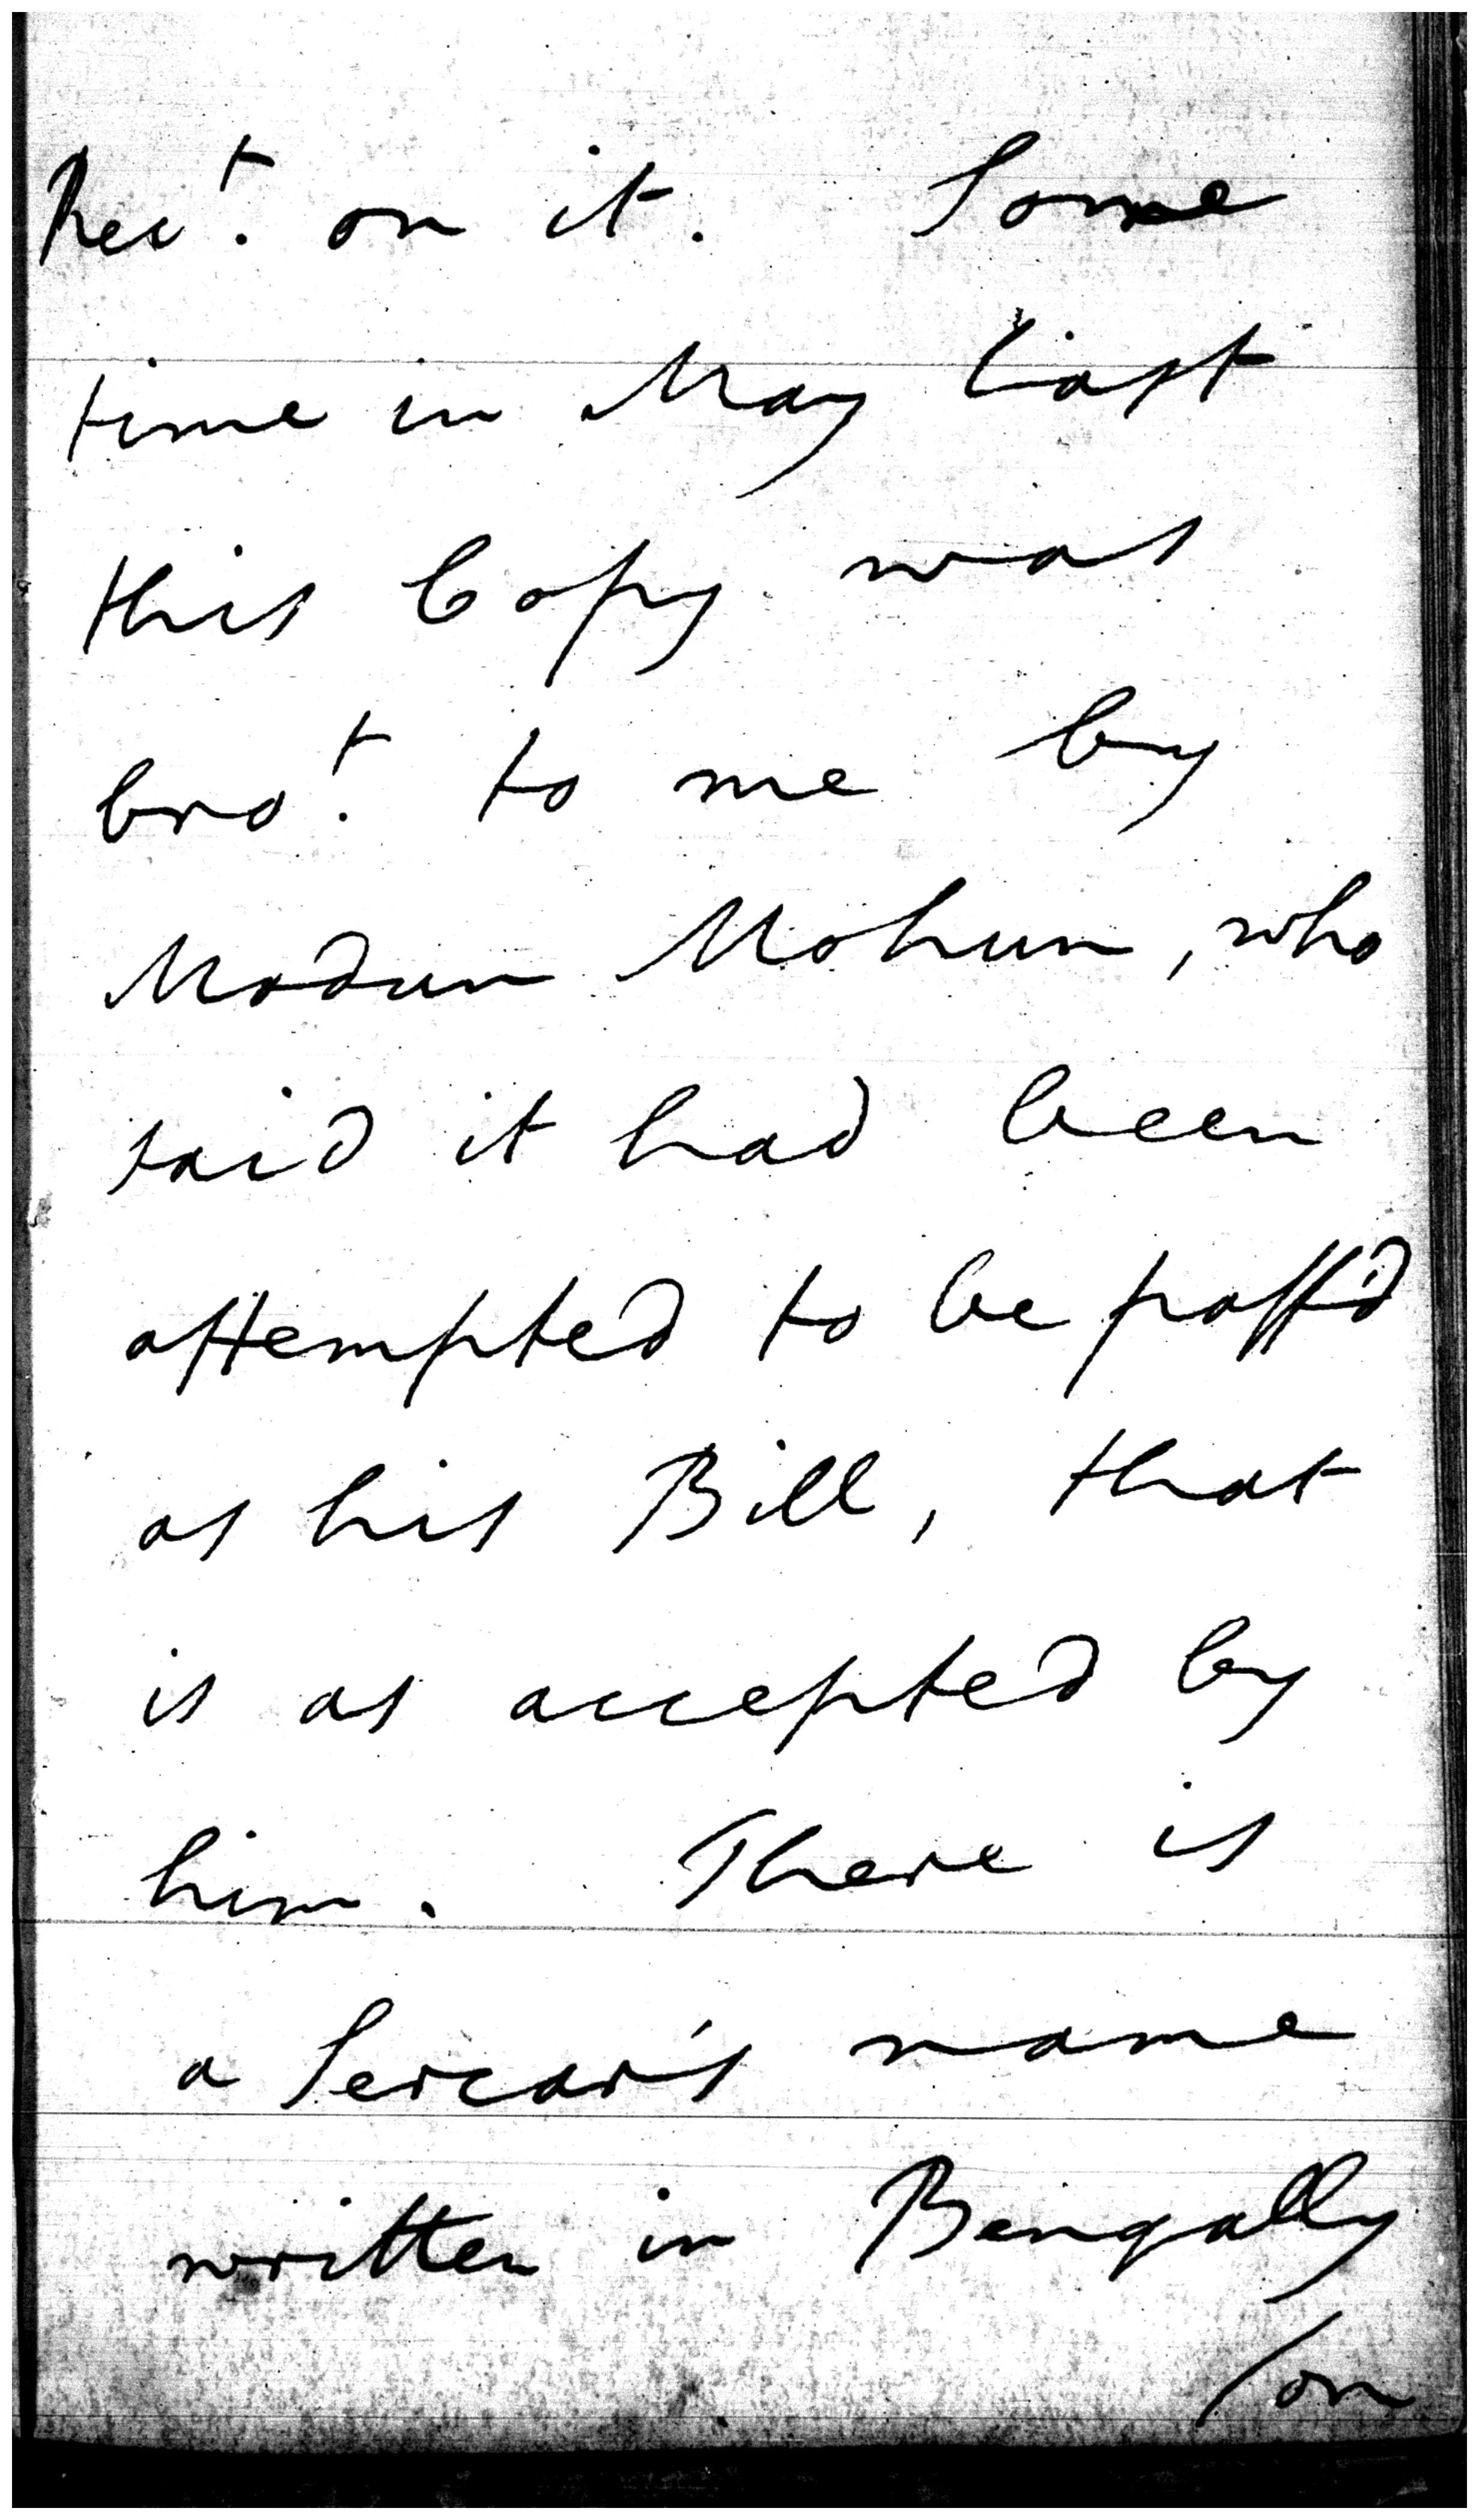 Rect. on it. Some
time in May last
this Copy was
brot. to me by
Modun Mohun, who
said it had been
attempted to be pass'd
as his Bill, that
is as accepted by
him. There is
a Sercar's name
written in Bengally
/on